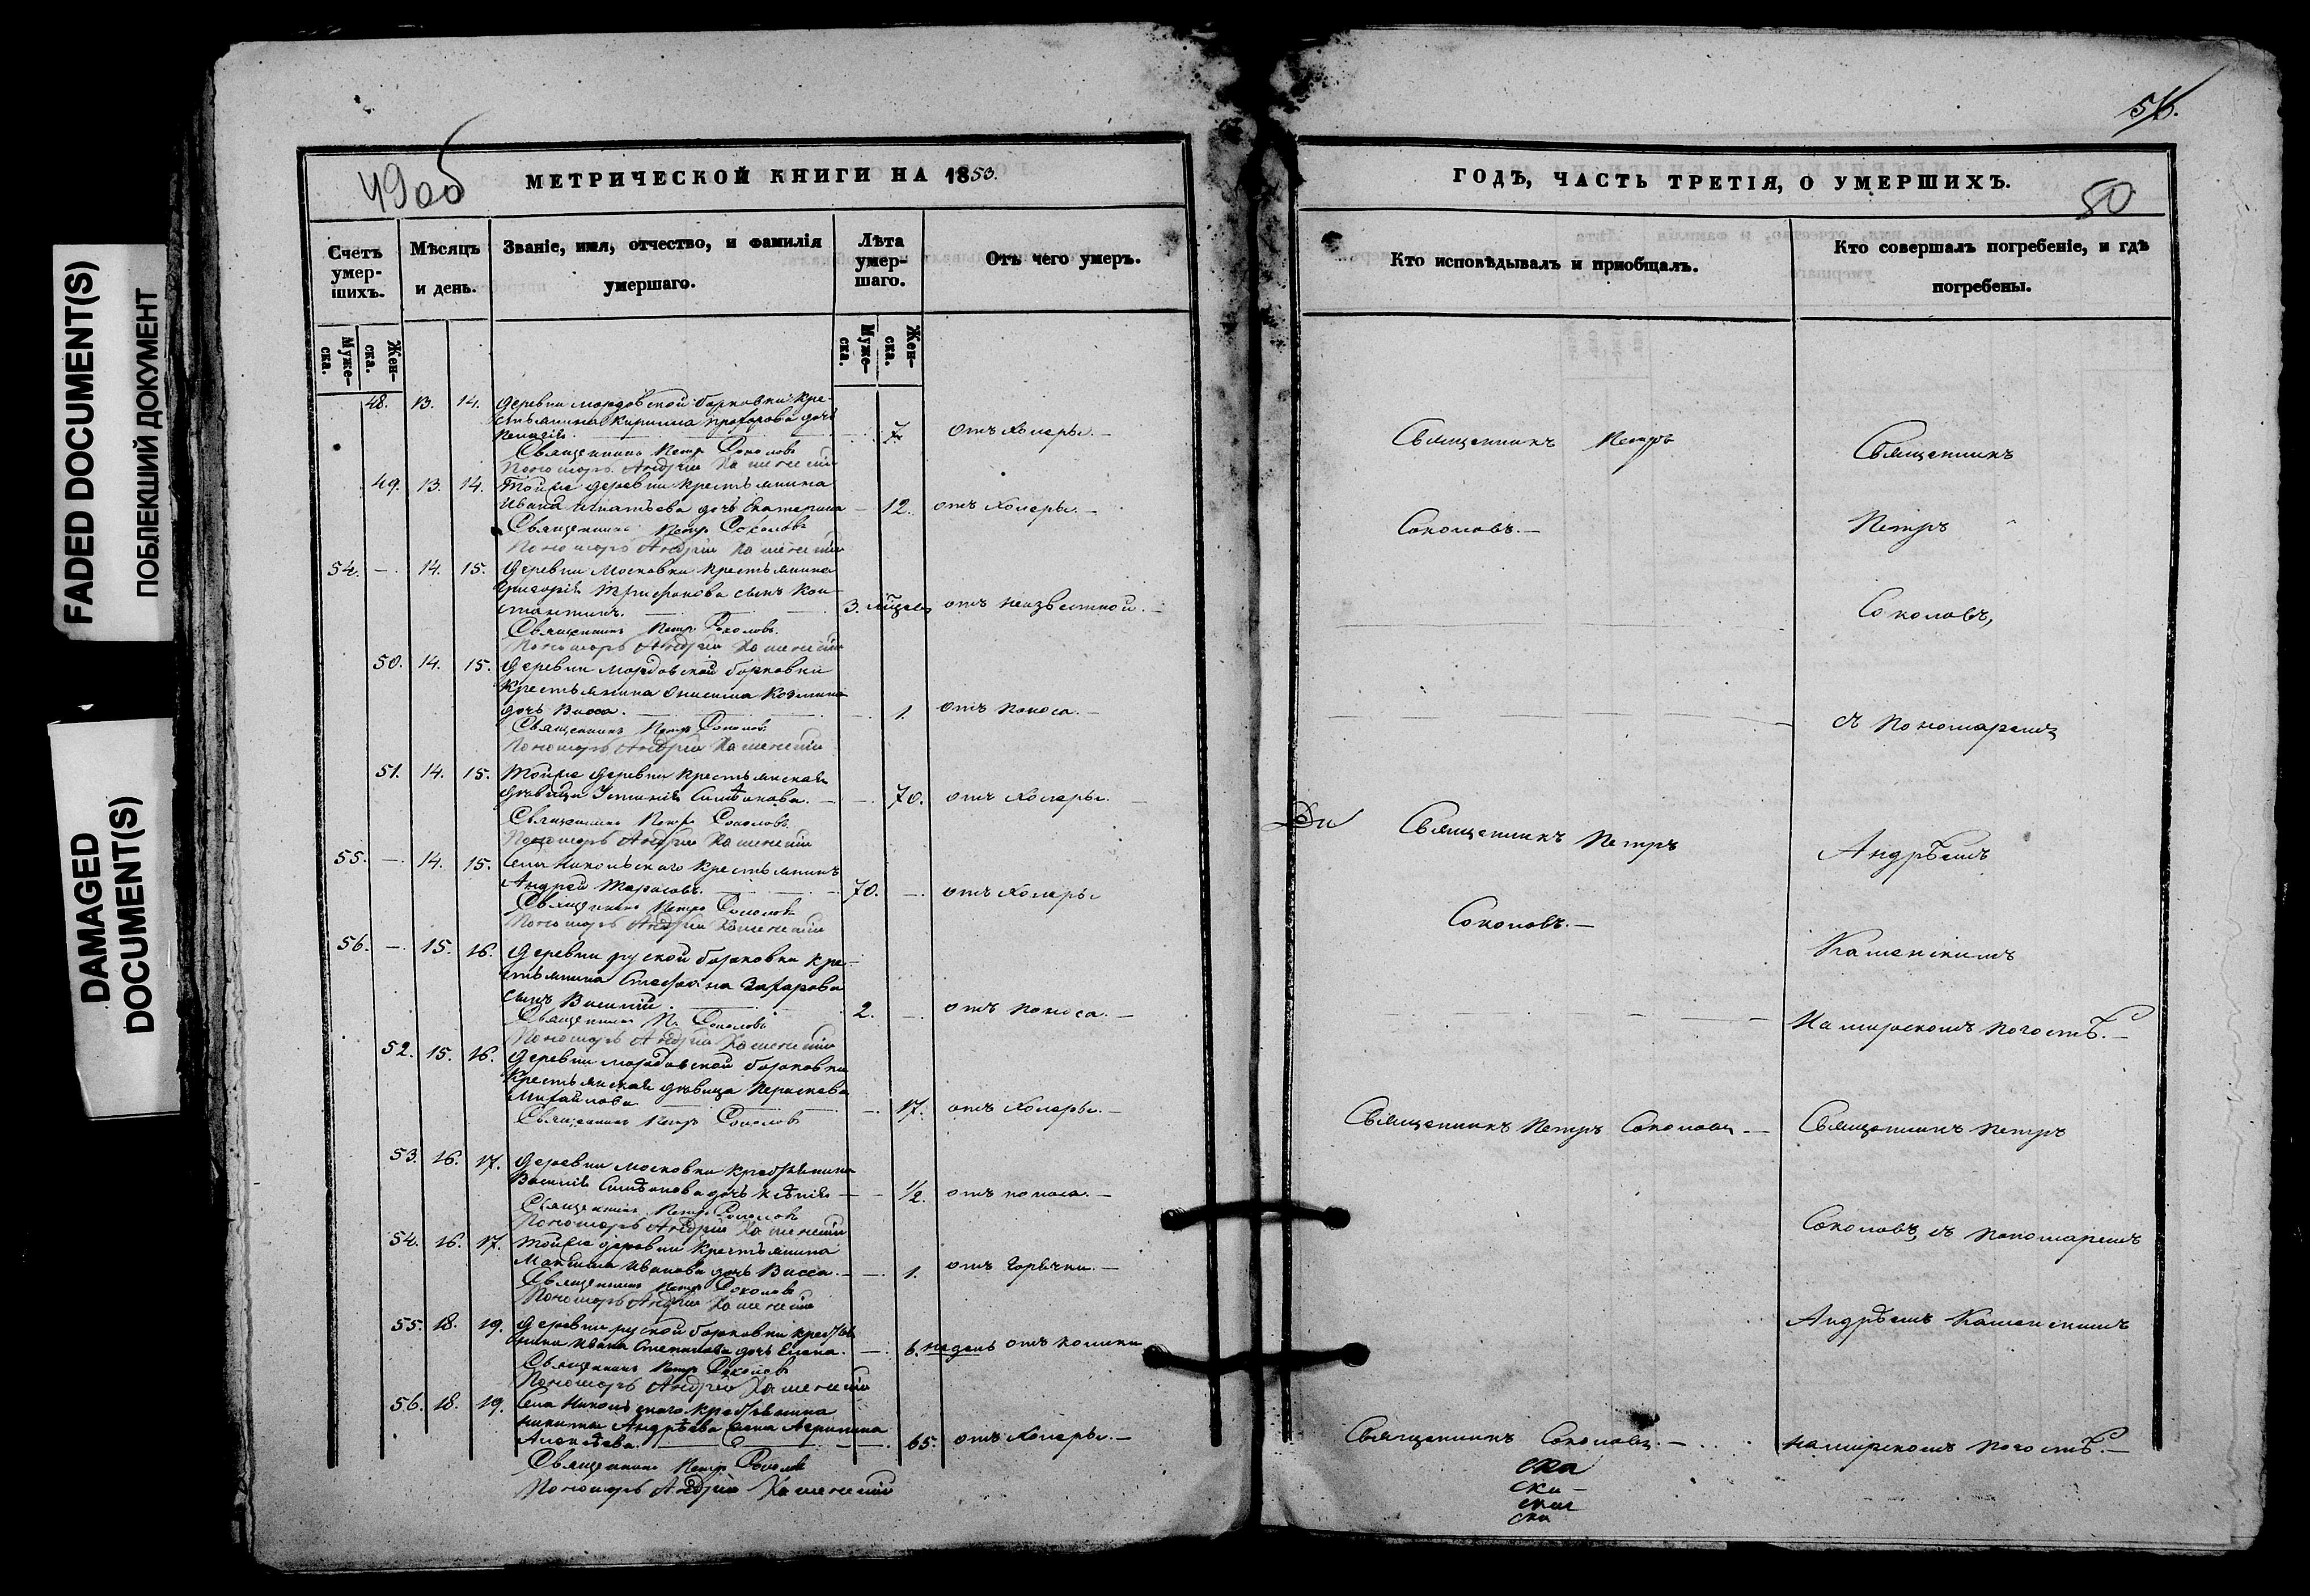 FADED DOCUMENT(S)
ПОБЛЕКШИЙ ДОКУМЕНТ
DAMAGED
DOCUMENT(S)
490об
МЕТРИЧЕСКОЙ КНИГИ НА 1853.
Счетъ умер-шихъ.
Мѣсяцъ и день.
Званіе, имя, отчество, и фамилія умершаго.
Лѣта умер-шаго.
Отъ чего умеръ.
Муже-ска.
Жен-ска.
Муже-ска.
Жен-ска.
48. 13. 14. Деревни мордовской борковки кре-
стьянина Кирилла Прохорова дочь
7 отъ холеры. —
Священникъ Петръ Соколовъ
Пономарь Андрей Каменскій
49. 13. 14. Тойже деревни крестьянина
Ивана Игнатьева дочь Екатерина — 12. отъ холеры. —
Священникъ Петръ Соколовъ
Пономарь Андрей Каменскій
54. — 14. 15. Деревни Московки крестьянина
Григорія Трифонова сынъ Кон-
стантинъ. 3. мѣсяц отъ неизвестной. —
Священникъ Петръ Соколовъ.
Пономарь Андрей Каменскій
50. 14. 15. Деревни мордовской борковки
крестьянина Онисима Козмина
дочь Васса. 1. отъ поноса. —
Священникъ Петръ Соколовъ
Пономарь Андрей Каменскій
51. 14. 15. Тойже деревни крестьянская
дѣвица Устинія Симѣонова. — 70. отъ холеры. —
Священникъ Петръ Соколовъ
Пономарь Андрей Каменскій
55. — 14. 15. Села Никольскаго крестьянинъ
Андрей Тарасовъ. 70. — отъ холеры
Священникъ Петръ Соколовъ
Пономарь Андрей Каменскій
56. — 15. 16. Деревни руской борковки кре-
стьянина Стефана Захарова
сынъ Василій. 2. — отъ поноса. —
Священникъ П. Соколовъ
Пономарь Андрей Каменскій
52. 15. 16. Деревни мордовской борковки
крестьянская дѣвица Параскева
Михайлова — 17. отъ холеры. —
Священникъ Петръ Соколовъ
53. 16. 17. Деревни Московки крестьянина
Василія Симѣонова дочь — 1/2. отъ поноса. —
Священникъ Петръ Соколовъ
Пономарь Андрей Каменскій
54. 16. 17. Тойже деревни крестьянина
Максима Иванова дочь Васса. — 1. отъ горячки. —
Священникъ Петръ Соколовъ
Пономарь Андрей Каменскій
55. 18. 19. Деревни руской борковки крестья-
нина Ивана Степанова дочь Елена. — 6. недель отъ
Священникъ Петръ Соколовъ
Пономарь Андрей Каменскій
56. 18. 19. Села Никольскаго крестьянина
Никиты Андрѣева жена Агрипина
Алексѣева. 65. отъ холеры. —
Священникъ Петръ Соколовъ
Пономарь Андрей Каменскій
50
ГОДЪ, ЧАСТЬ ТРЕТІЯ, О УМЕРШИХЪ.
Кто исповѣдывалъ и пріобщалъ.
Кто совершалъ погребеніе, и гдѣ погребены.
Священникъ Петръ
Соколовъ. —
Священникъ Петръ
Соколовъ. —
Священникъ Петръ Соколовъ —
Священникъ Соколовъ. —
Священникъ
Петръ
Соколовъ,
съ пономаремъ
Андрѣемъ
Каменскимъ
На мирскомъ погостѣ. —
Священникъ Петръ
Соколовъ, съ пономаремъ
Андрѣемъ Каменскимъ
на мирскомъ погостѣ. —